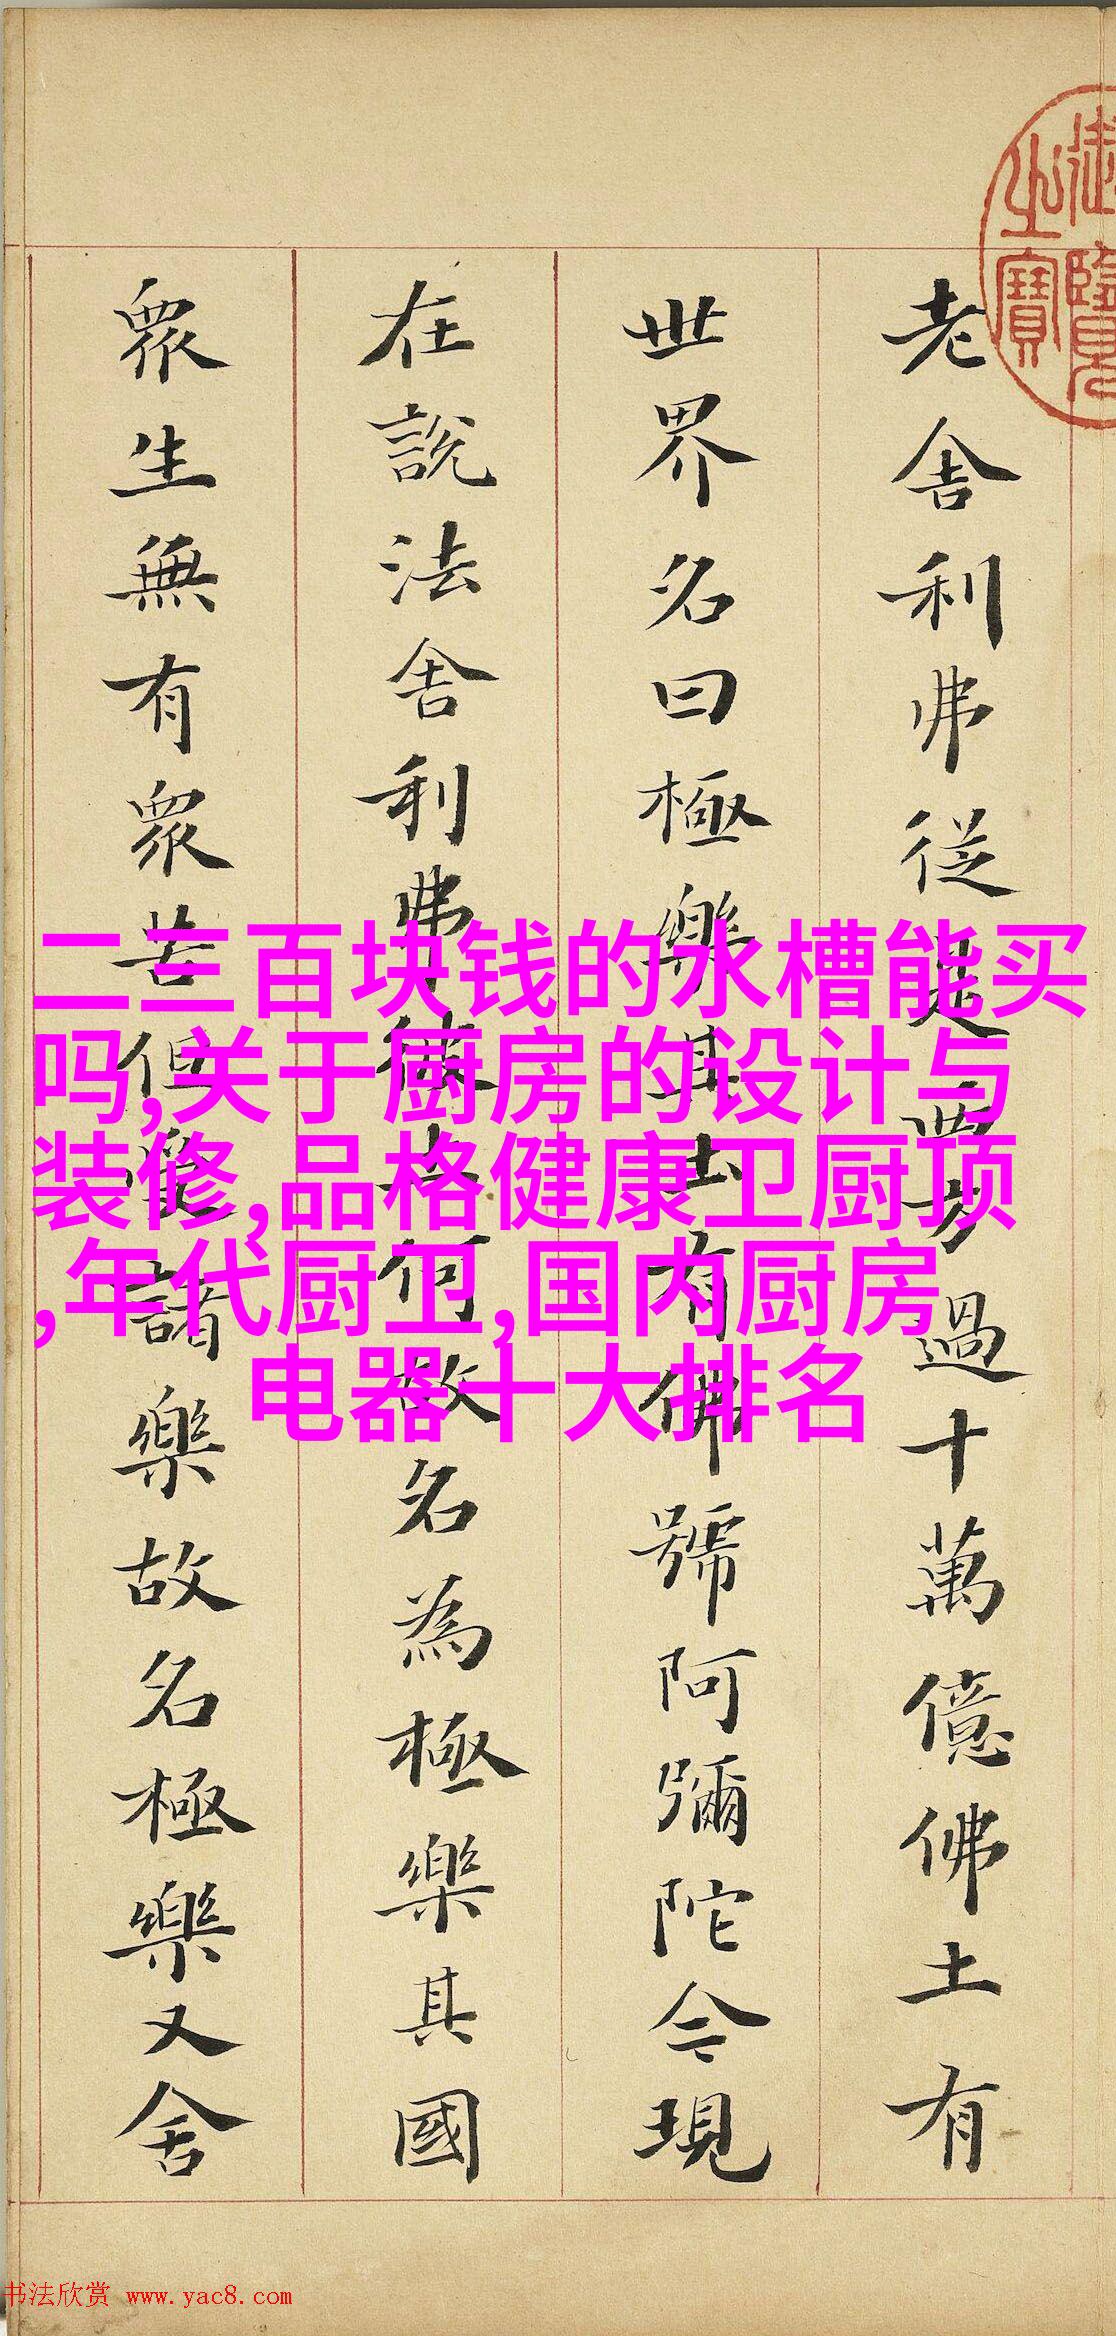 老舍利弗從是西方過十萬億佛土有
世界名曰極樂其土有佛號阿彌陀今現
在說法舍利弗彼土何故名為極樂其國
眾生無有眾苦但受諸樂故名極樂又舍
二三百块钱的水槽能买
吗,关于厨房的设计与
装修,品格健康卫厨顶
,年代厨卫,国内厨房
电器十大排名
御覽之寶
书法欣赏 www.yac8.com